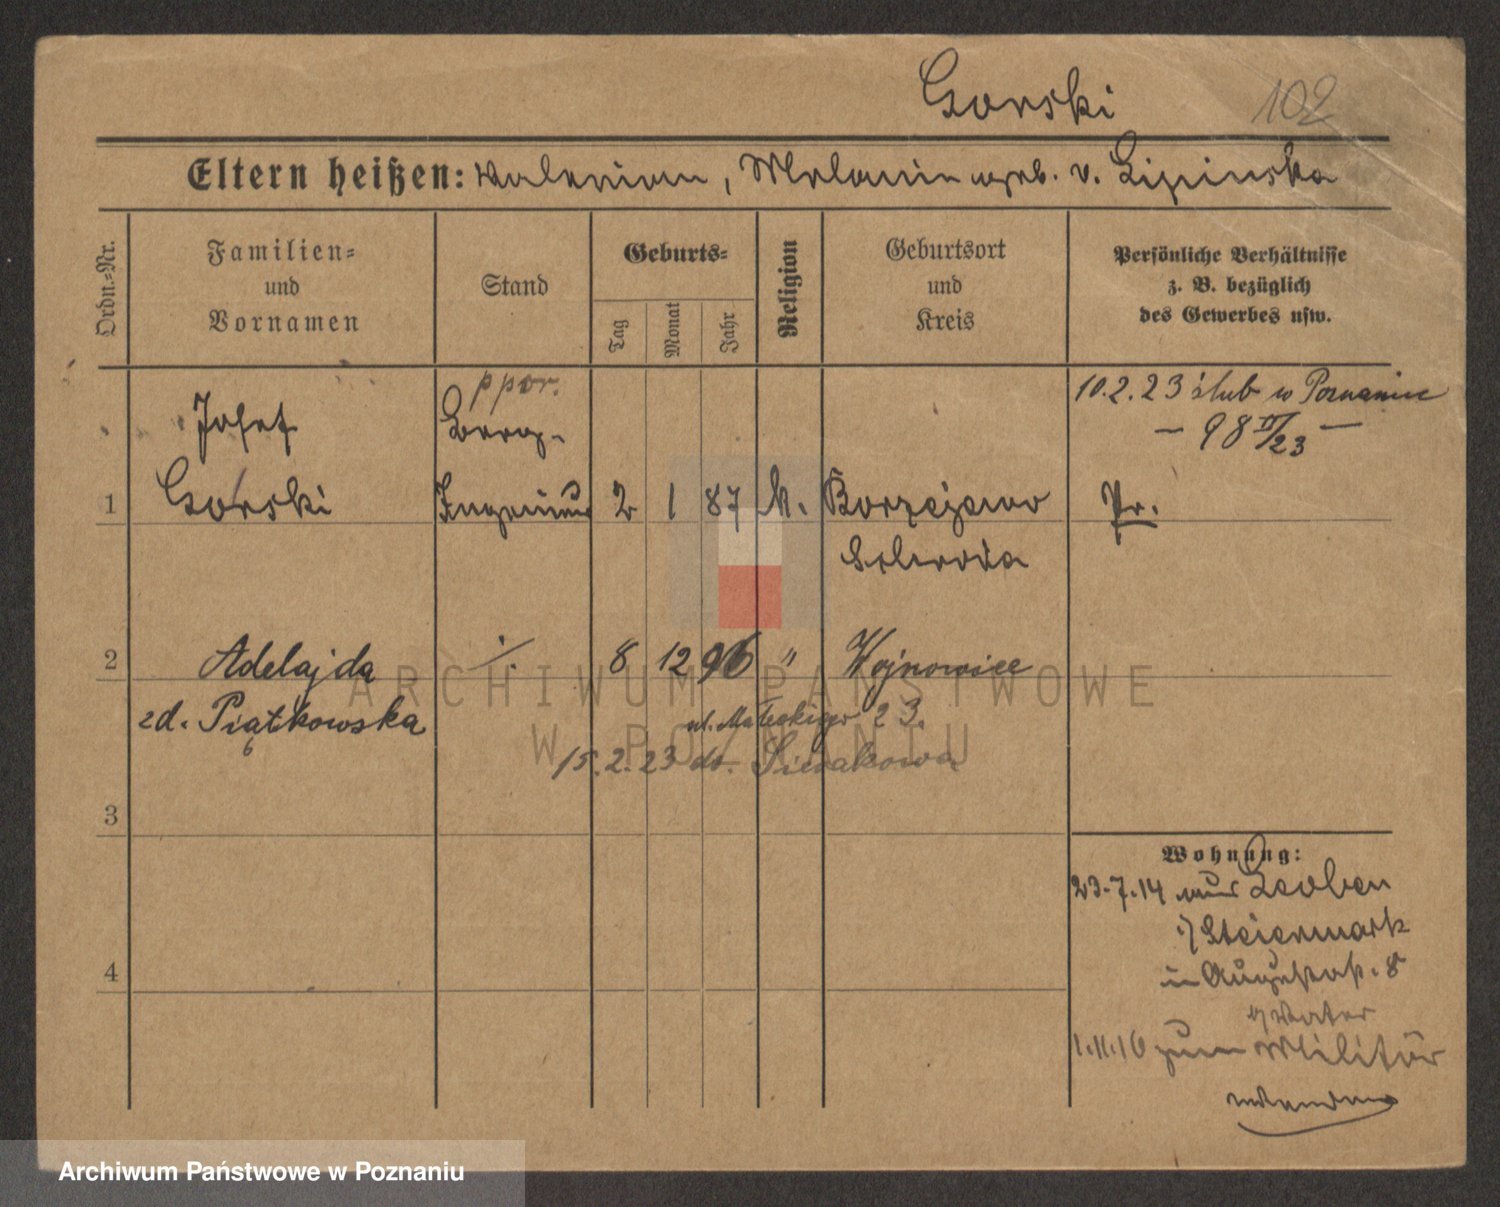 Gorski
102
Eltern heißen: Valerian, Melanie geb. v. Lipinska
Ordn.-Nr.
Familien= und Vornamen
Stand
Geburts=
Tag
Monat
Jahr
Religion
Geburtsort und Kreis
Persönliche Verhältnisse z. B. bezüglich des Gewerbes usw.
ppor.
10.2.23 ślub w Poznaniu
Josef
Berg-
- 98 II/23 -
1 Gorski Ingenieur 2 1 87 k. Borzejewo Pr.
Schroda
2 Adelajda ·/. 8 12 96 " Wojnowice
zd. Piątkowska ul. Małeckiego 23.
15.2.23 do Sierakowa
3
Wohnung:
23.7.14 aus Leoben
i/ Steiermark
4
in Augustastr. 8
b/ Vater
1.11.16 zum Militär
ARCHIWUM PAŃSTWOWE
W POZNANIU
Archiwum Państwowe w Poznaniu